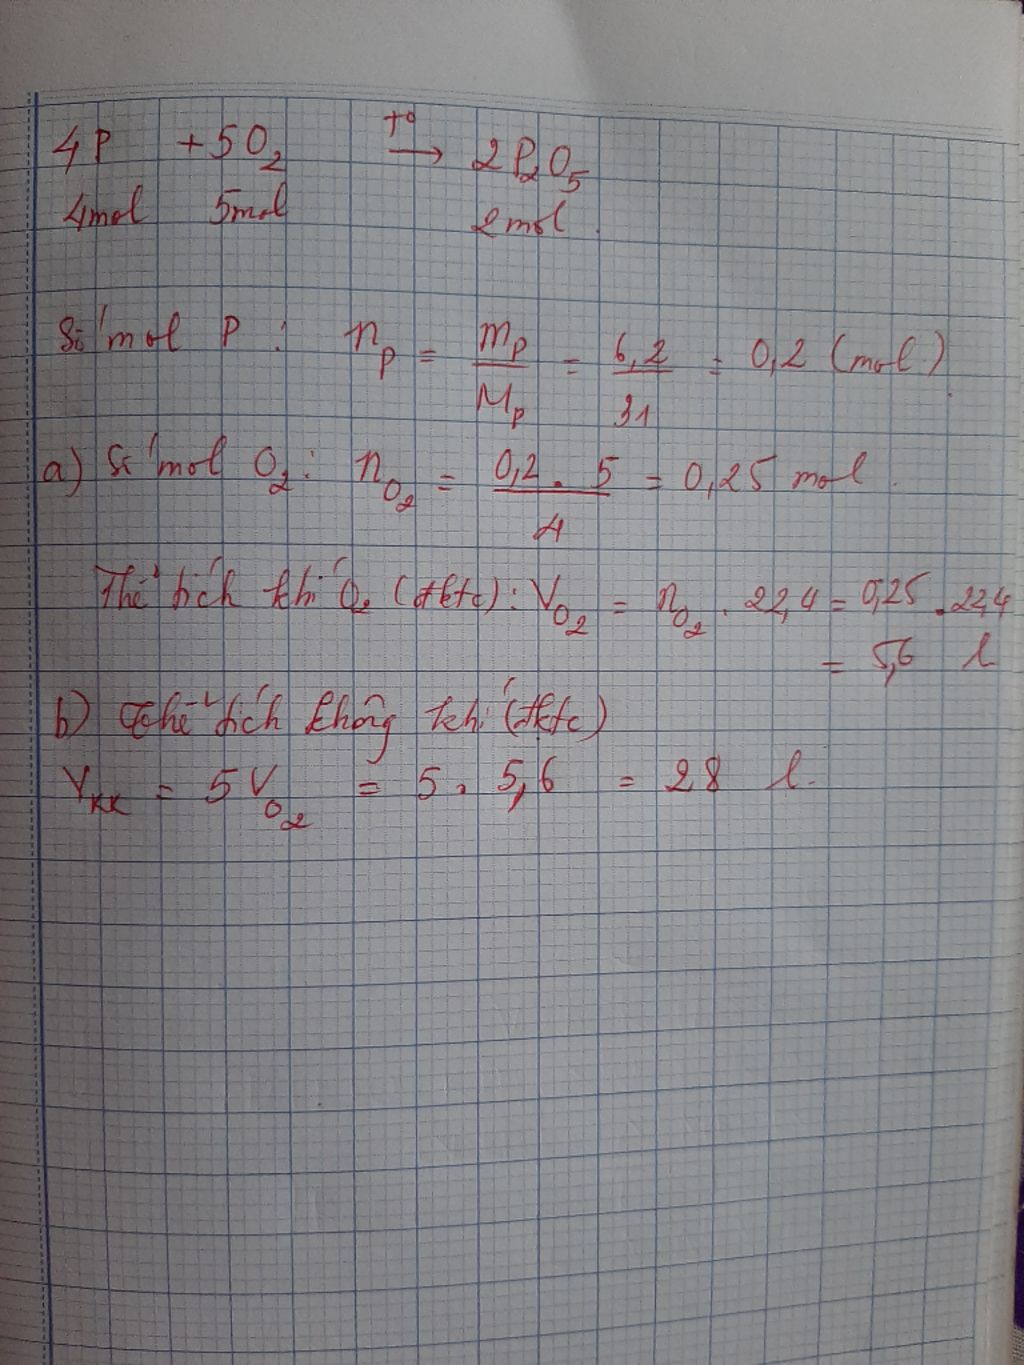 4P + 5O₂ t° → 2P₂O₅
4mol 5mol 2mol
Số mol P : nₚ = mₚ/Mₚ = 6,2/31 = 0,2 (mol)
a) Số mol O₂ : n_O₂ = 0,2 . 5/4 = 0,25 mol.
Thể tích khí O₂ (đktc) : V_O₂ = n_O₂ . 22,4 = 0,25 . 22,4
= 5,6 l
b) Thể tích không khí (đktc)
Vₖₖ = 5 V_O₂ = 5 . 5,6 = 28 l.